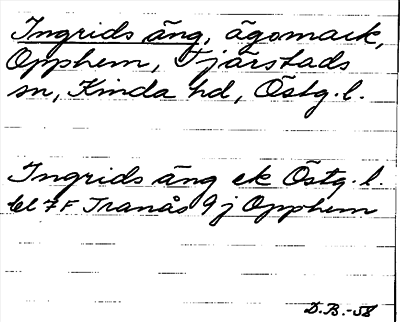 Ingrids äng, ägomark,
Opphem, Tjärstads
sn, Kinda hd, Östg. l.
Ingrids äng ek Östg. l.
bl 7F Tranås 9 j Opphem
D.B.-58